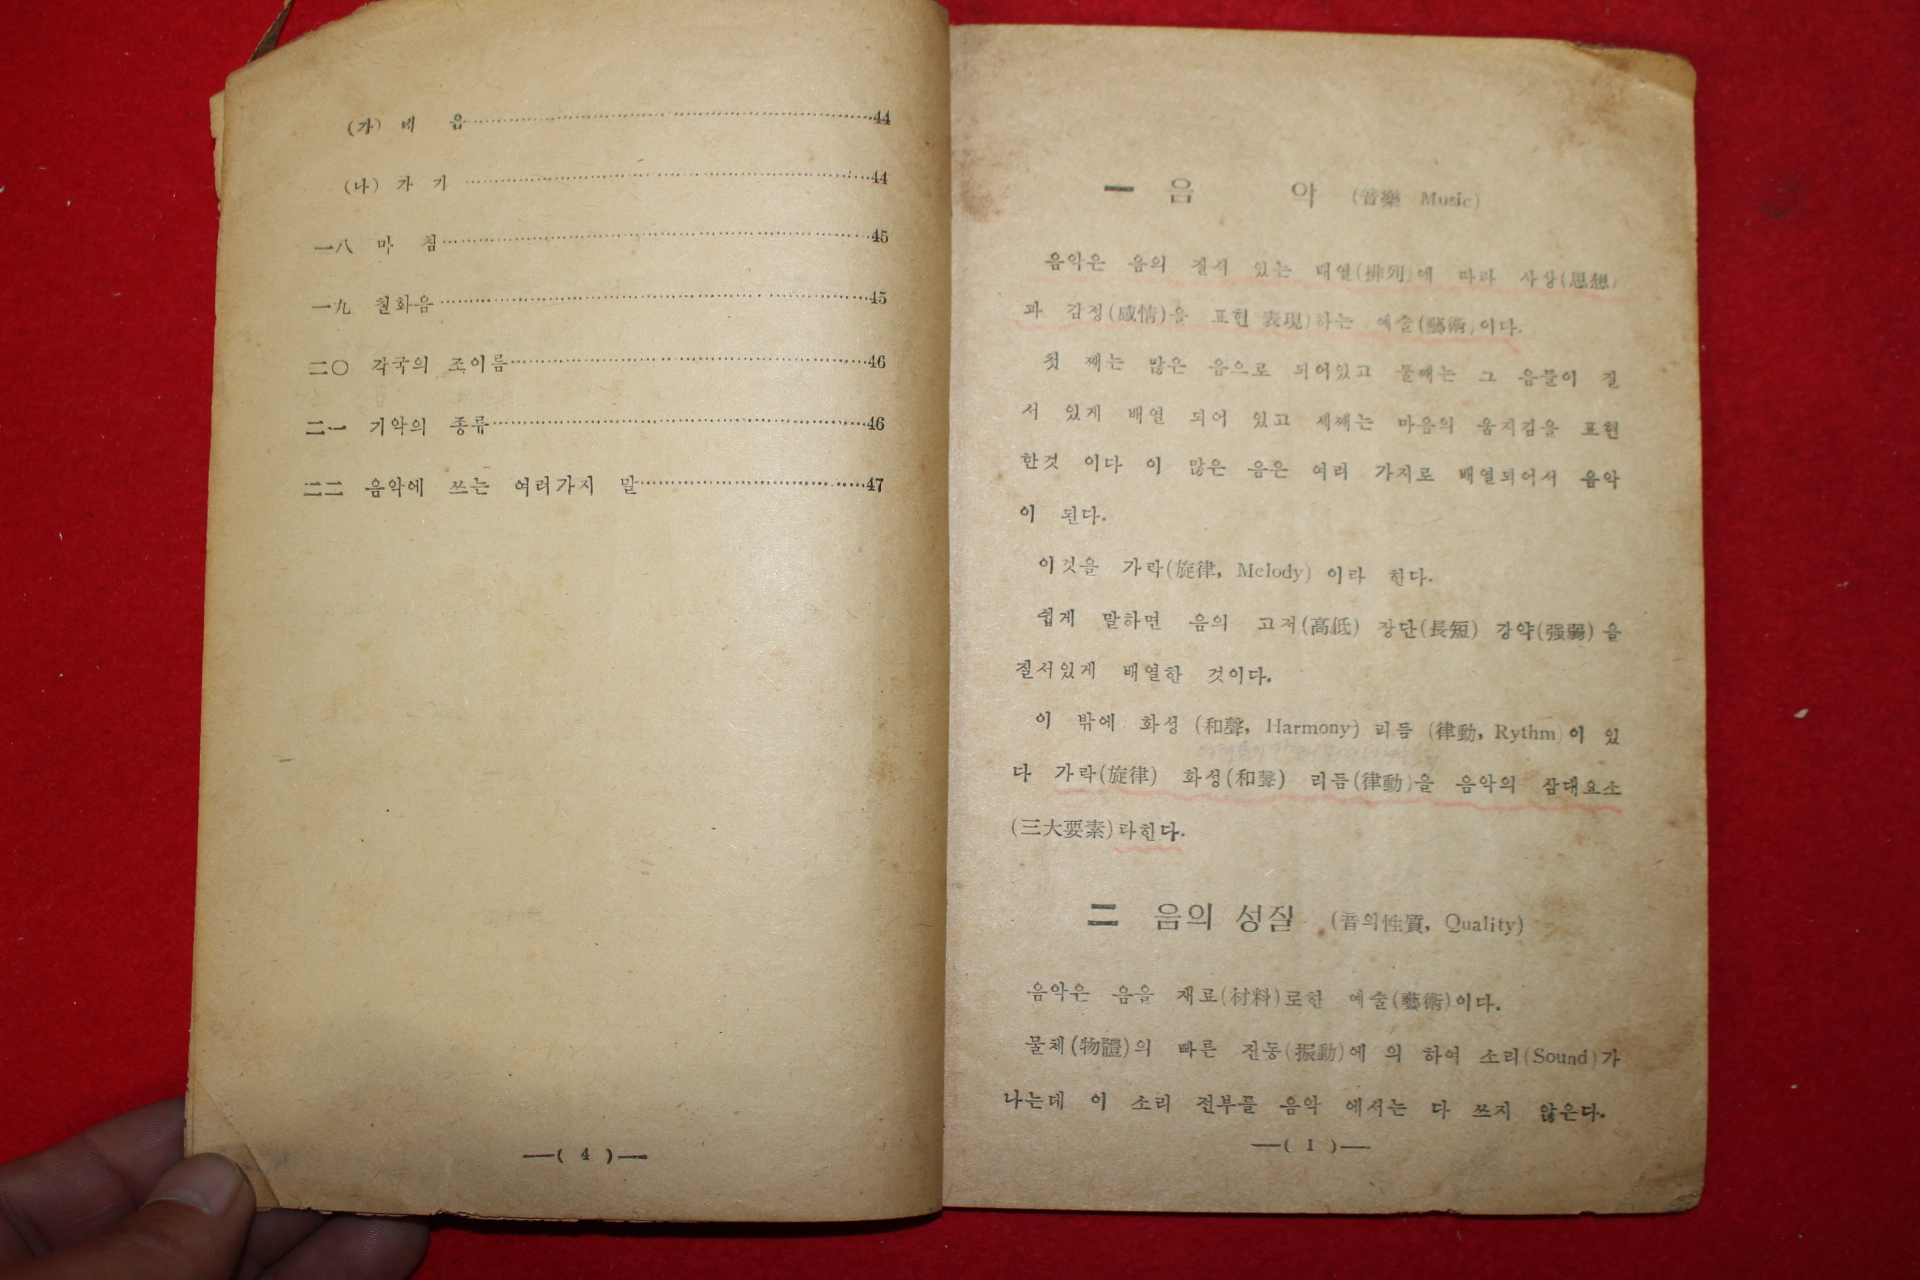 (가) 네 음 44
(나) 가 기 44
一八 마 침 45
一九 철화음 45
二〇 각국의 조이름 46
二一 기악의 종류 46
二二 음악에 쓰는 여러가지 말 47
—( 4 )—
一 음 악 (音樂 Music)
음악은 음의 질서 있는 배열(排列)에 따라 사상(思想)
과 감정(感情)을 표현 表現)하는 예술(藝術)이다.
첫 째는 많은 음으로 되어있고 둘째는 그 음들이 질
서 있게 배열 되어 있고 세째는 마음의 움지김을 표현
한것 이다 이 많은 음은 여러 가지로 배열되어서 음악
이 된다.
이것을 가락(旋律, Melody) 이라 한다.
쉽게 말하면 음의 고저(高低) 장단(長短) 강약(强弱)을
질서있게 배열한 것이다.
이 밖에 화성 (和聲, Harmony) 리듬 (律動, Rythm)이 있
다 가락(旋律) 화성(和聲) 리듬(律動)을 음악의 삼대요소
(三大要素)라한다.
二 음의 성질 (音의性質, Quality)
음악은 음을 재료(材料)로한 예술(藝術)이다.
물체(物體)의 빠른 진동(振動)에 의 하여 소리(Sound)가
나는데 이 소리 전부를 음악 에서는 다 쓰지 않은다.
—( 1 )—